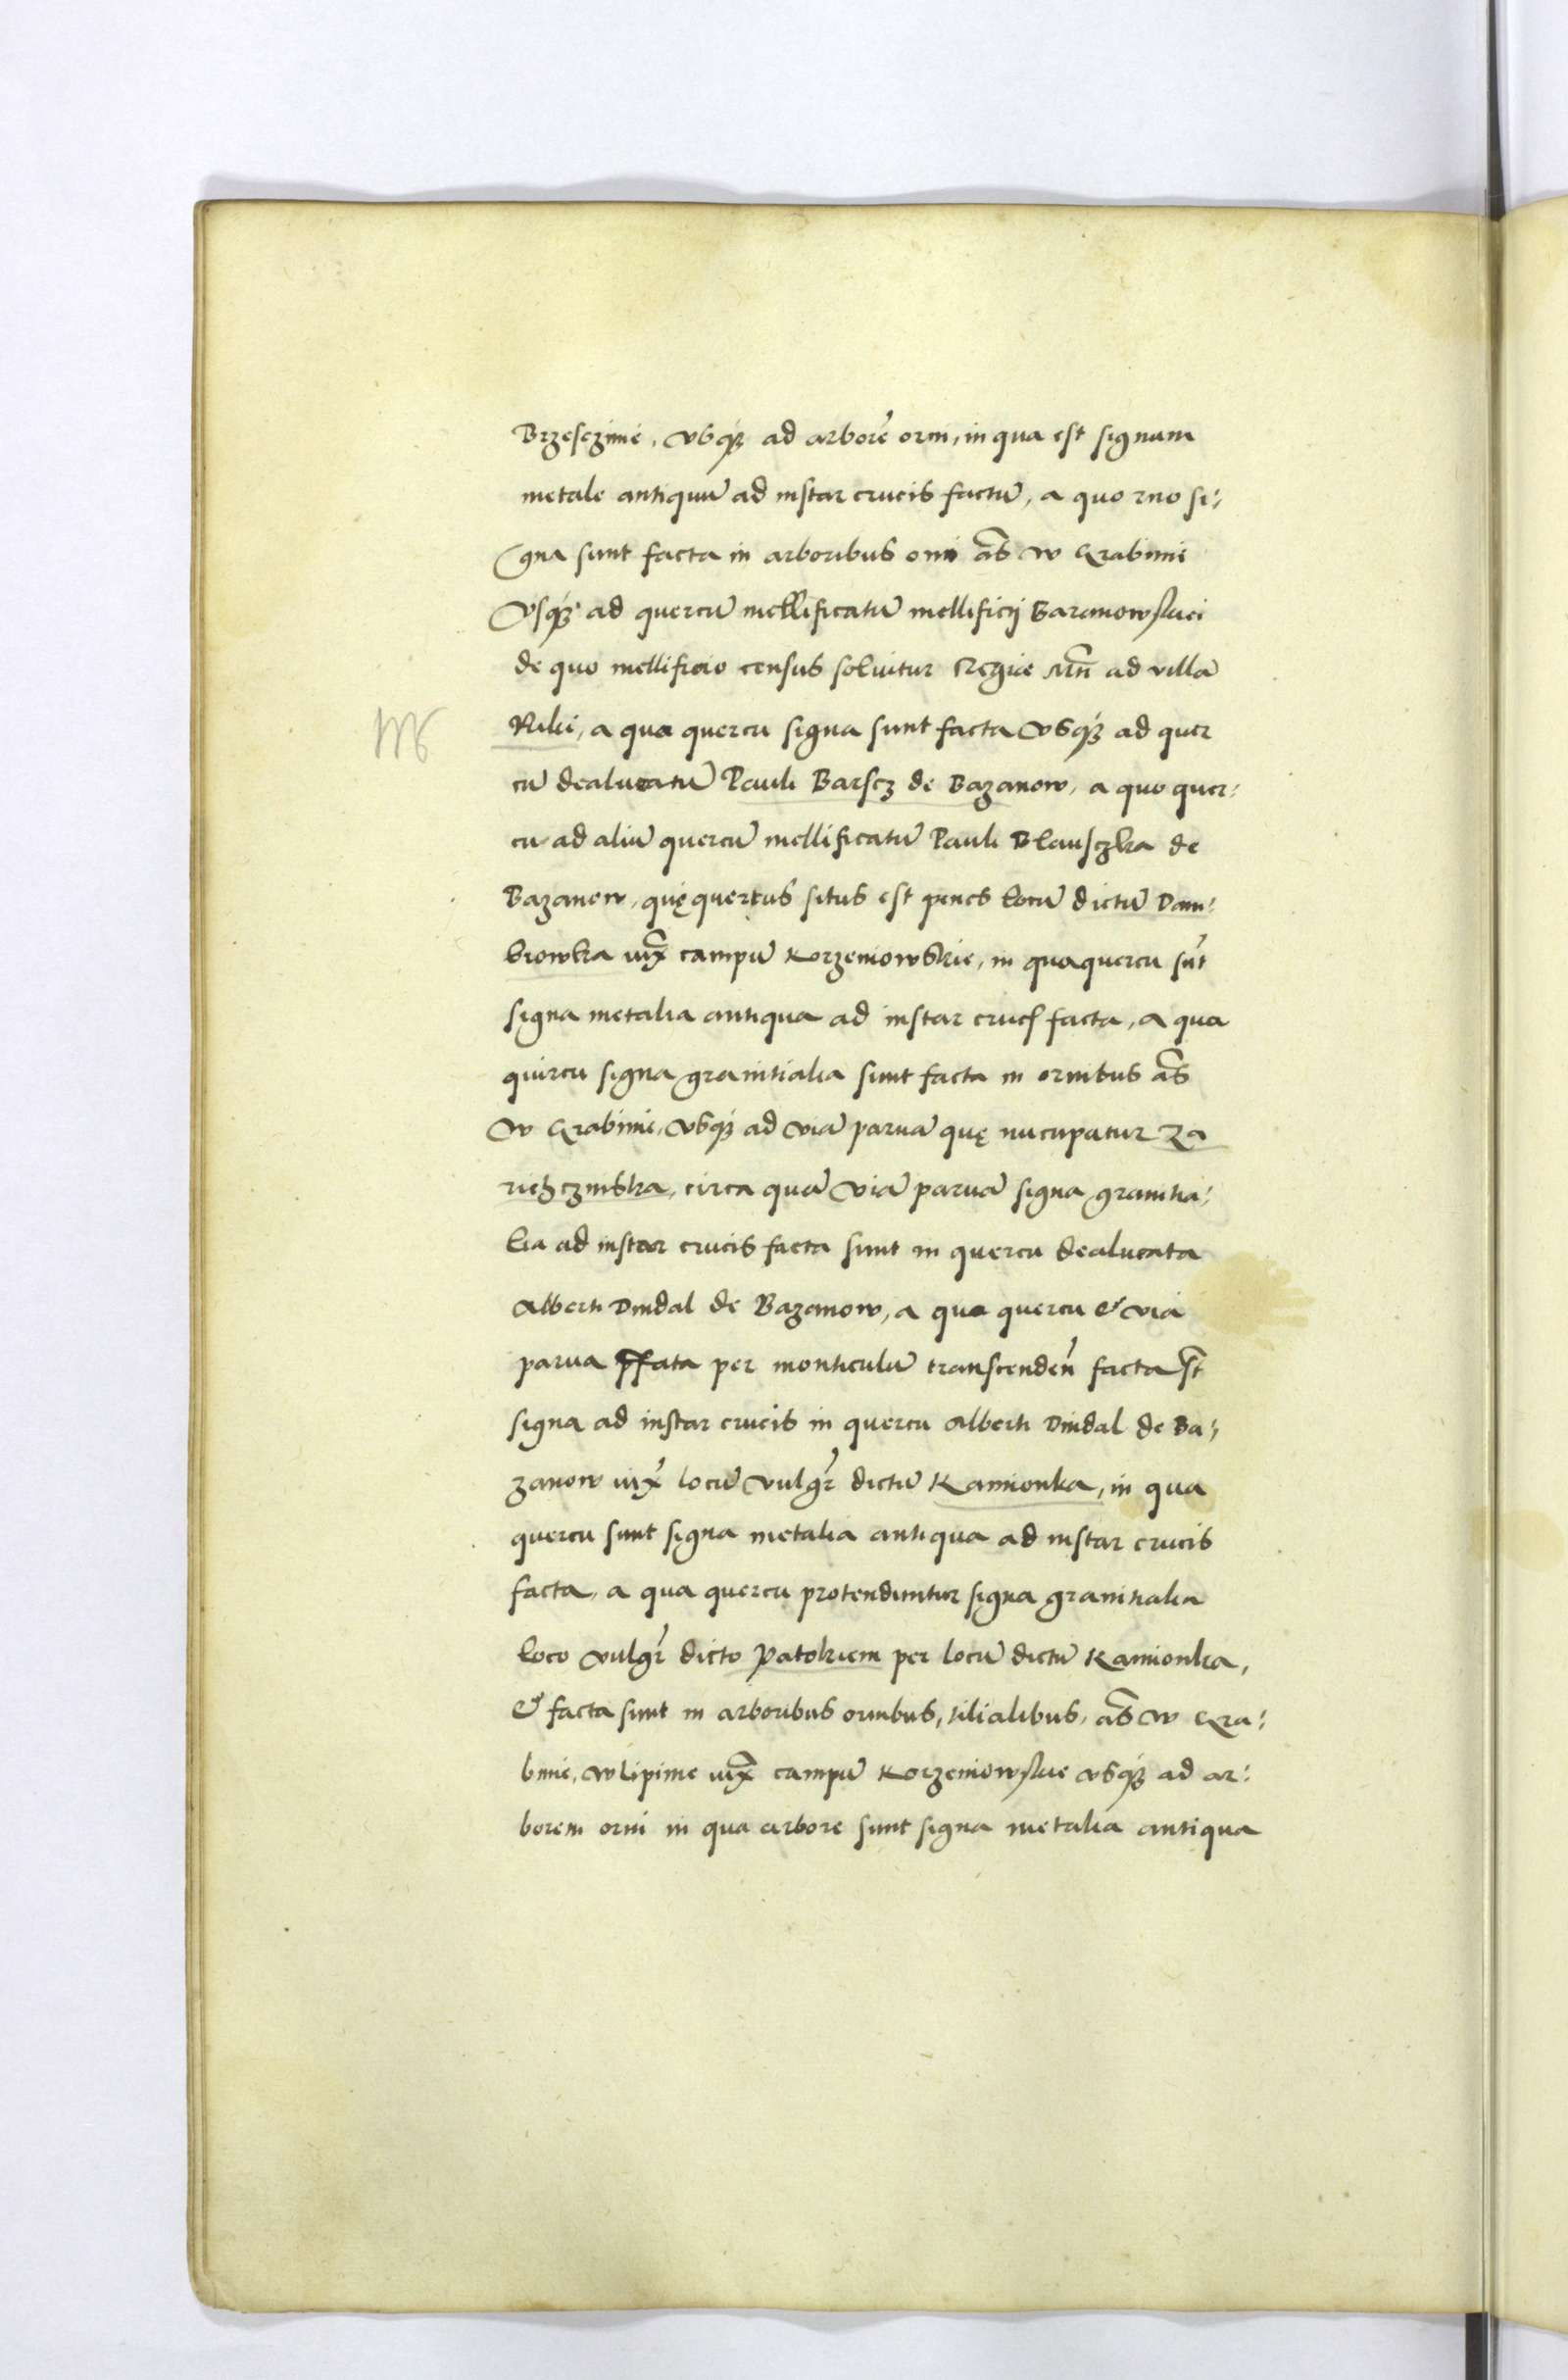 Brzesczinie, vsq₃ ad arborē orni, in qua est signum
metale antiquū ad instar crucis factū, a quo rno si:
gna sunt facta in arboribus orni als̃ w Grabinie
Vsq₃ ad quercū mellificatū mellificij Baranowsluei
de quo mellificio census soluitur Regiæ Mt̃i ad villā
Riki, a qua quercu signa sunt facta vsq₃ ad quer
cū dealueatū Pauli Barscz de Bazanow, a quo quer:
cu ad aliū quercū mellificatū Pauli Blausczka de
Bazanow, quę quercus situs est penes locū dictū Dam:
browka iux̃ campū Korzeniowskie, in qua quercu sūt
signa metalia antiqua ad instar cruc̃ facta, a qua
quercu signa granitialia sunt facta in ornibus als̃
w Grabinie, vsq₃ ad viā paruā quę nūcupatur Za
rieczinska, circa quā viā paruā signa granitia:
lia ad instar crucis facta sunt in quercu dealueata
Alberti Dindal de Bazanow, a qua quercu & via
parua p̃fata per monticulū transcendeñ facta st̃
signa ad instar crucis in quercu Alberti Dindal de Ba:
zanow iux̃ locū vulgr̃ dictū Kamionka, in qua
quercu sunt signa metalia antiqua ad instar crucis
facta, a qua quercu protenduntur signa granitialia
loco vulgr̃ dicto Patokiem per locū dictū Kamionka,
& facta sunt in arboribus ornibus, tilialibus, als̃ w Gra:
binie, w lipinie iux̃ campū Korzeniowskie vsq₃ ad ar:
borem orni in qua arbore sunt signa metalia antiqua